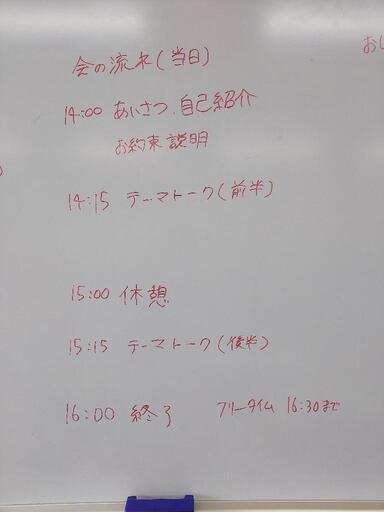 会の流れ(当日)
14:00 あいさつ、自己紹介
お約束説明
14:15 テーマトーク(前半)
15:00 休憩
15:15 テーマトーク(後半)
16:00 終了 フリータイム 16:30まで